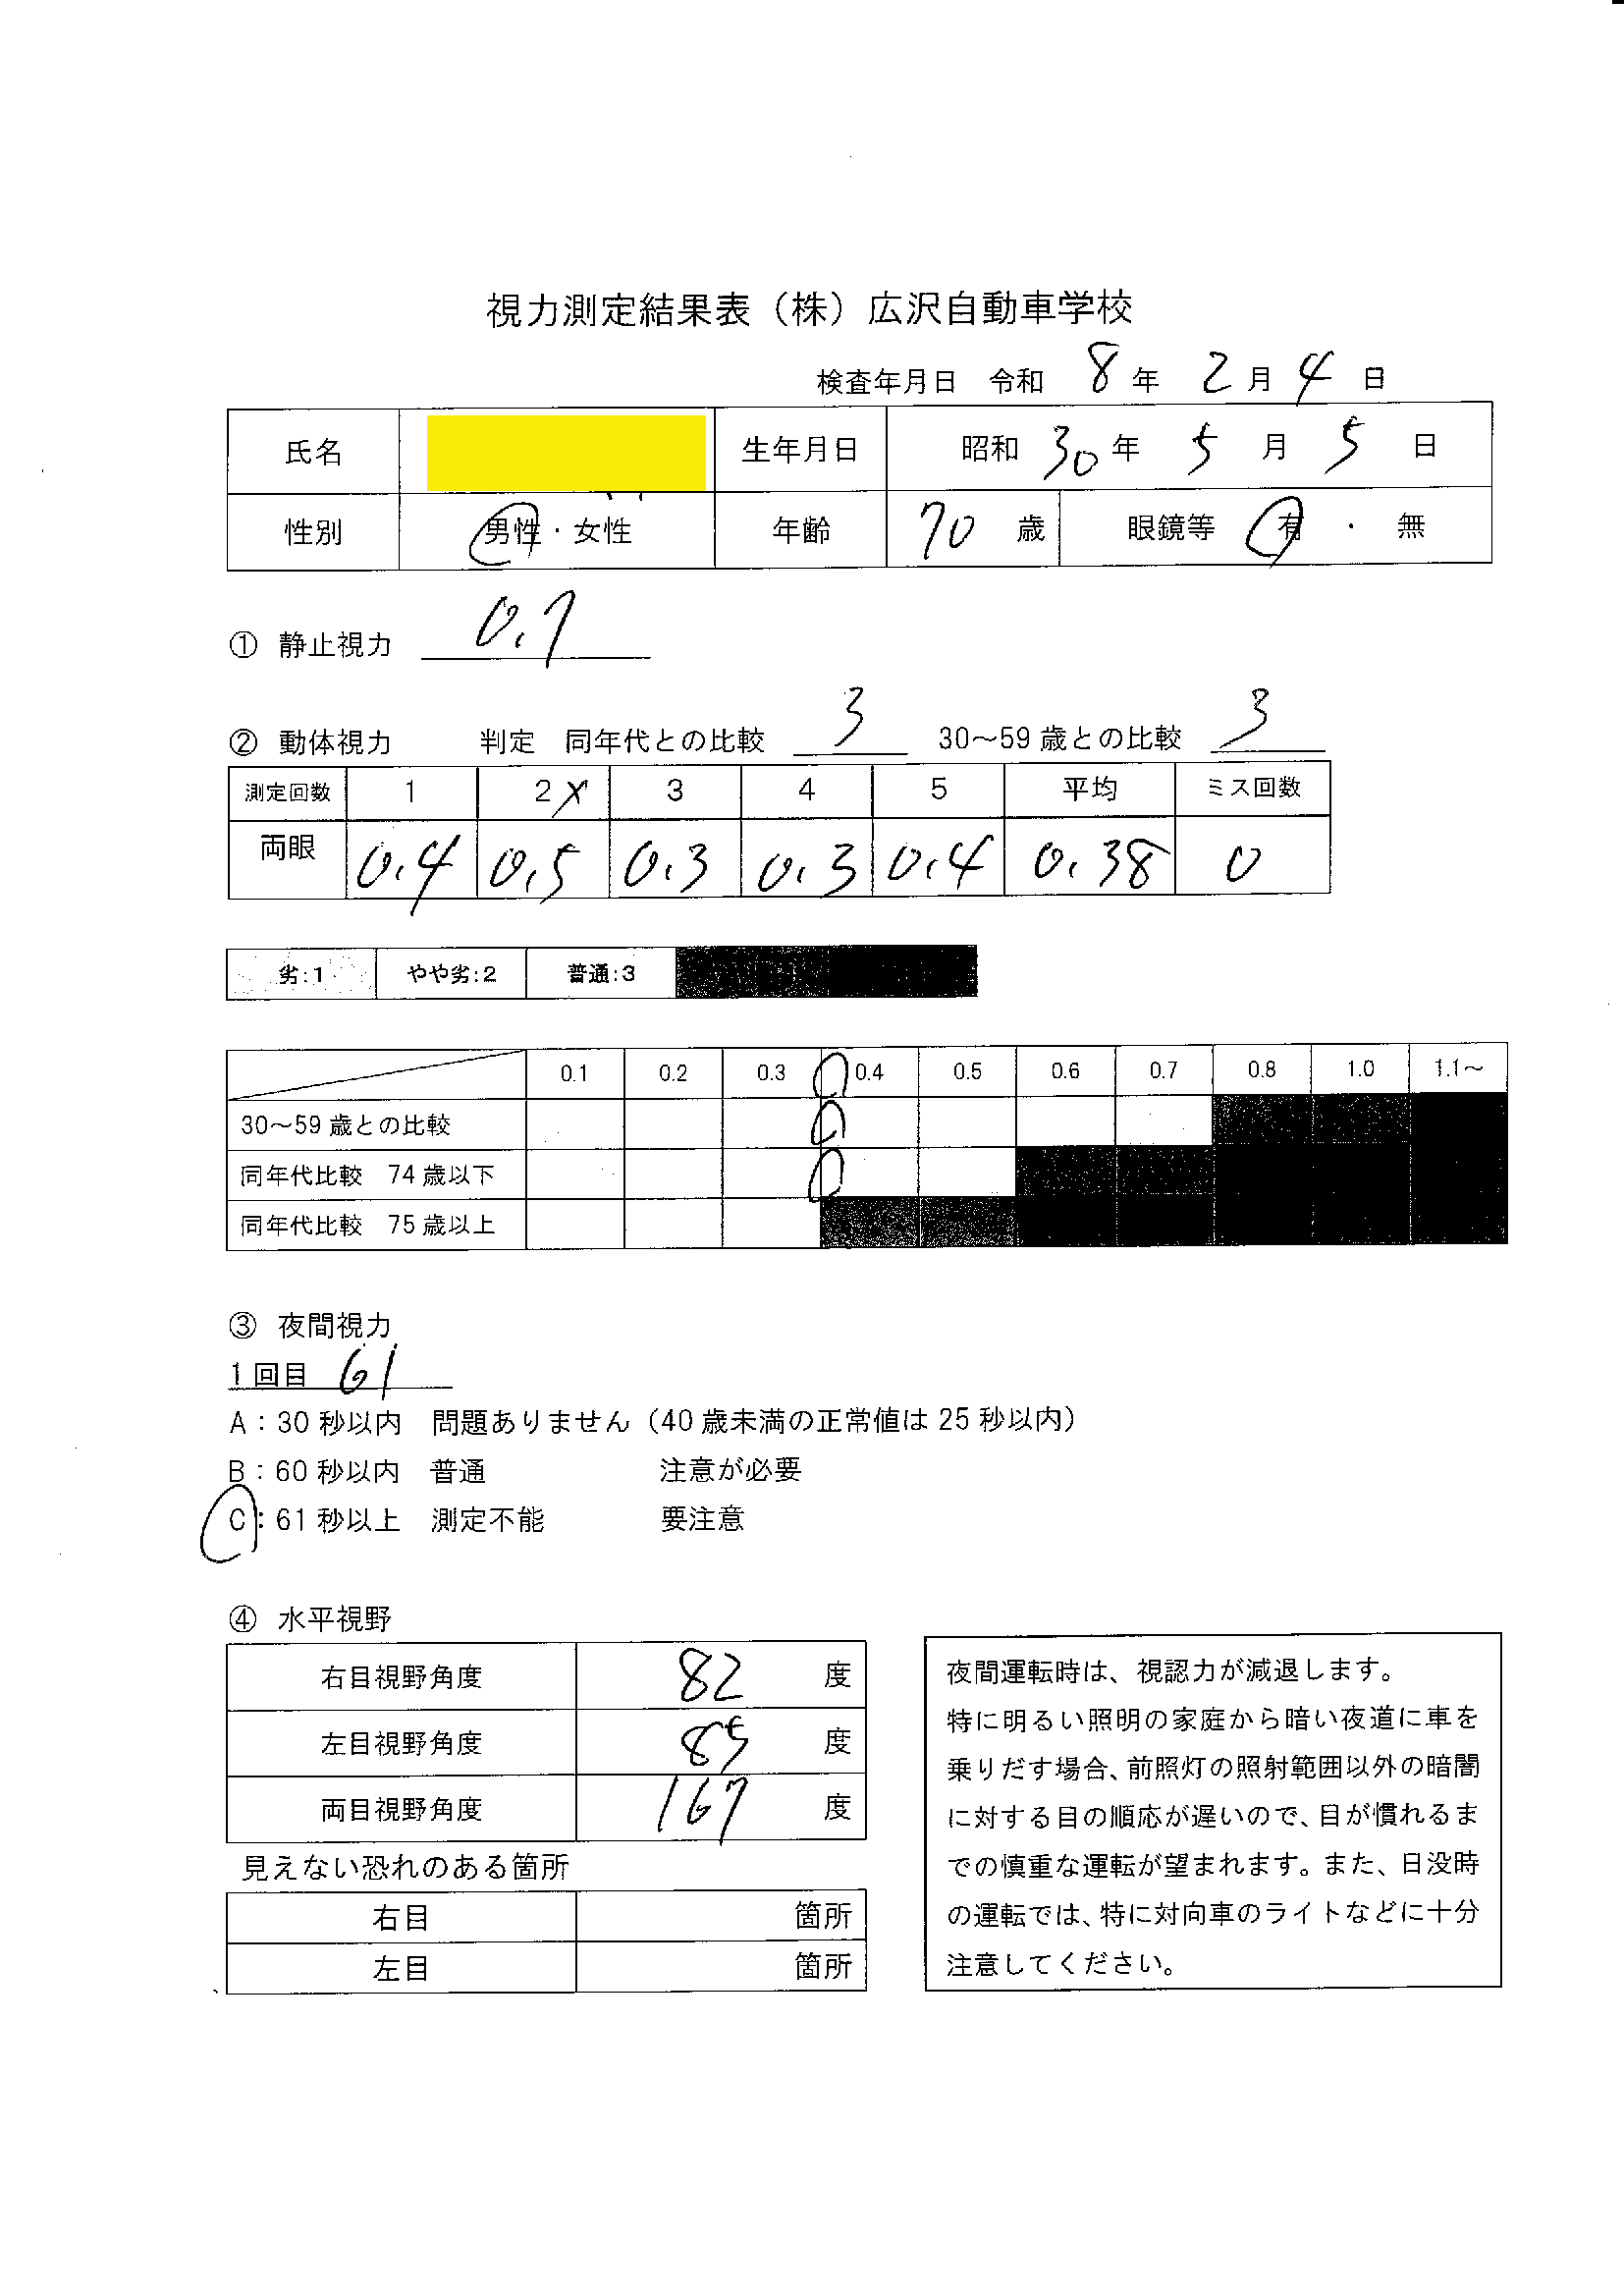 視力測定結果表（株）広沢自動車学校
検査年月日　令和　8 年　2 月 4 日
氏名　生年月日　昭和 30 年 5 月 5 日
性別　男性・女性　年齢　70 歳　眼鏡等　有 ・ 無
① 静止視力　0.7
② 動体視力　判定　同年代との比較　3　30～59 歳との比較　3
測定回数　1　2 ×　3　4　5　平均　ミス回数
両眼　0.4　0.5　0.3　0.3　0.4　0.38　0
劣:1　やや劣:2　普通:3
0.1　0.2　0.3　0.4　0.5　0.6　0.7　0.8　1.0　1.1～
30～59 歳との比較
同年代比較　74 歳以下
同年代比較　75 歳以上
③ 夜間視力
1 回目　61
A：30 秒以内　問題ありません（40 歳未満の正常値は 25 秒以内）
B：60 秒以内　普通　注意が必要
C：61 秒以上　測定不能　要注意
④ 水平視野
右目視野角度　82 度
左目視野角度　85 度
両目視野角度　167 度
見えない恐れのある箇所
右目　箇所
左目　箇所
夜間運転時は、視認力が減退します。
特に明るい照明の家庭から暗い夜道に車を
乗りだす場合、前照灯の照射範囲以外の暗闇
に対する目の順応が遅いので、目が慣れるま
での慎重な運転が望まれます。また、日没時
の運転では、特に対向車のライトなどに十分
注意してください。